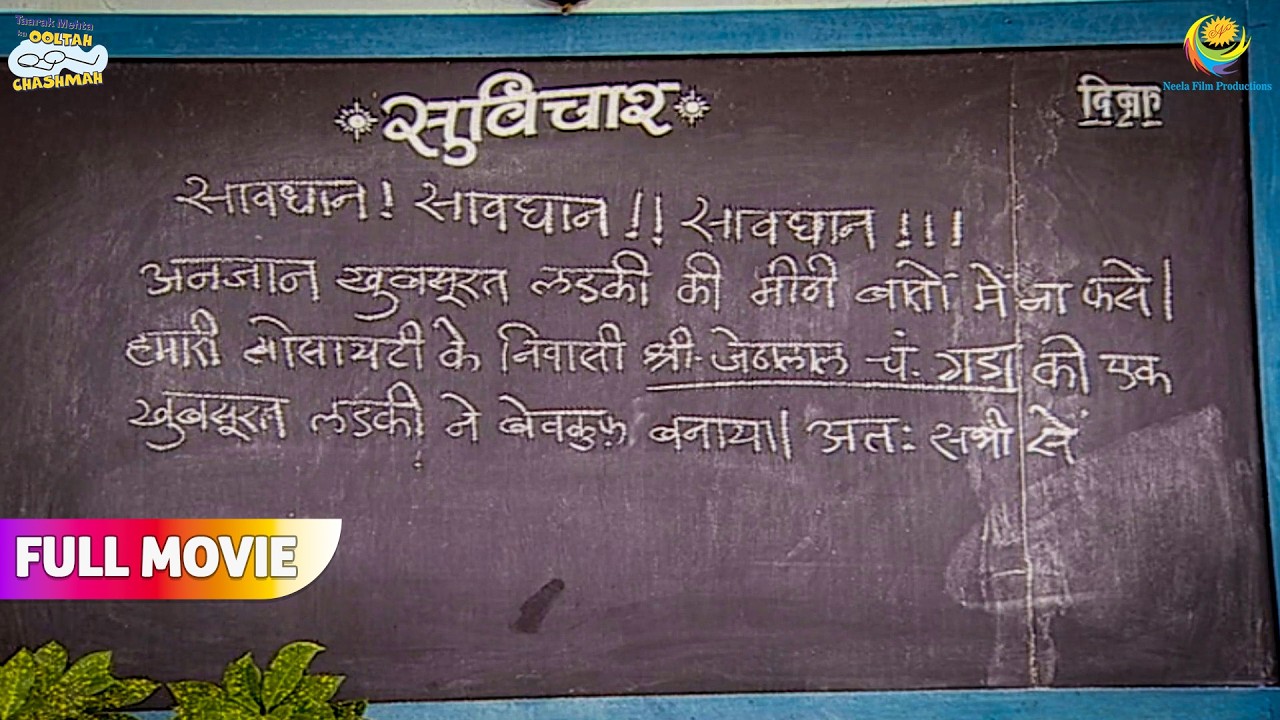 Taarak Mehta
ka OOLTAH
CHASHMAH
Neela Film Productions
सुविचार
दिनांक
सावधान! सावधान!! सावधान!!!
अनजान खुबसूरत लडकी की मीठी बातों में ना फसे|
हमारी सोसायटी के निवासी श्री. जेठालाल चं. गडा को एक
खुबसूरत लडकी ने बेवकुफ़ बनाया| अतः सभी सें
FULL MOVIE